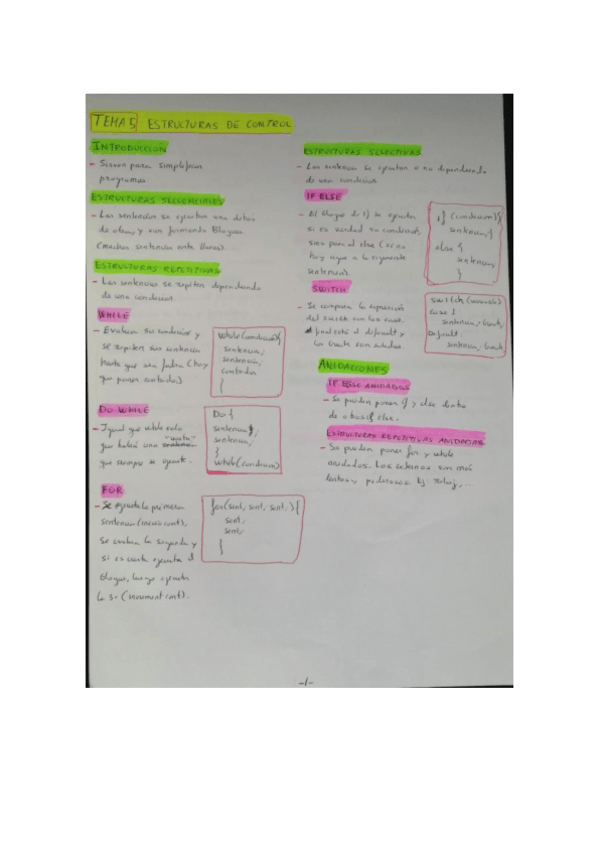 TEMA 5 ESTRUCTURAS DE CONTROL
INTRODUCCION
- Sirven para simplificar
programas.
ESTRUCTURAS SECUENCIALES
- Las sentencias se ejecutan una detrás
de otra, y van formando Bloques
(muchas sentencias entre llaves).
ESTRUCTURAS REPETITIVAS
- Las sentencias se repiten dependiendo
de una condicion.
WHILE
- Evaluan su condicion y
se repiten sus sentencias
hasta que sea falsa (hay
que poner contador)
while(condicion){
sentencia;
sentencia;
contador
}
DO WHILE
- Igual que while solo
que habrá una sentencia
"vuelta"
que siempre se ejecute.
Do {
sentencia;
sentencia;
}
while(condicion)
FOR
- Se ejecuta la primera
sentencia (inicio cont),
se evalua la segunda y
si es cierta ejecuta el
bloque, luego ejecuta
la 3ª (increment cont).
for(sent; sent; sent;){
sent;
sent;
}
ESTRUCTURAS SELECTIVAS
- Las sentencias se ejecutan o no dependiendo
de una condicion.
IF ELSE
- El bloque de if se ejecuta
si es verdad su condicion,
sino pasa al else (si no
hay sigue a la siguiente
sentencia).
if (condicion){
sentencia;}
else {
sentencia;
}
SWITCH
- Se compara la expresión
del switch con los case.
Al final está el default y
los breaks son
switch (variable)
case 1
sentencia; break;
Default:
sentencia; break;
ANIDACIONES
IF ELSE ANIDADOS
- Se pueden poner if y else dentro
de otros if else.
ESTRUCTURAS REPETITIVAS ANIDADAS
- Se pueden poner for y while
anidados. Los externos son más
lentos, y Ej: reloj, ...
-1-